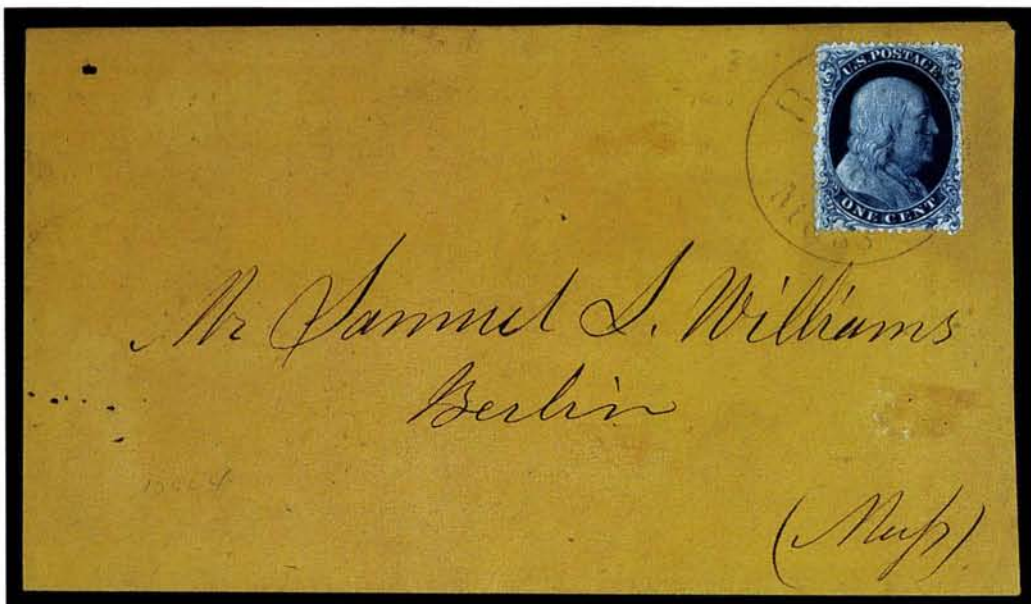 U.S. POSTAGE
ONE CENT
MASS
Mr Samuel S. Williams
Berlin
(Mass)